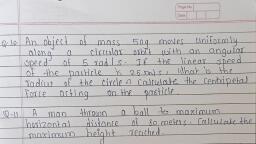 Page No
Date
Q-10 An object of mass 50g moves uniformly
along a circular orbit with an angular
speed of 5 rad/s. If the linear speed
of the particle is 25 m/s. What is the
radius of the circle? Calculate the centripetal
force acting on the particle.
Q-11 A man thrown a ball to maximum
horizontal distance of 80 meters. Calculate the
maximum height reached.